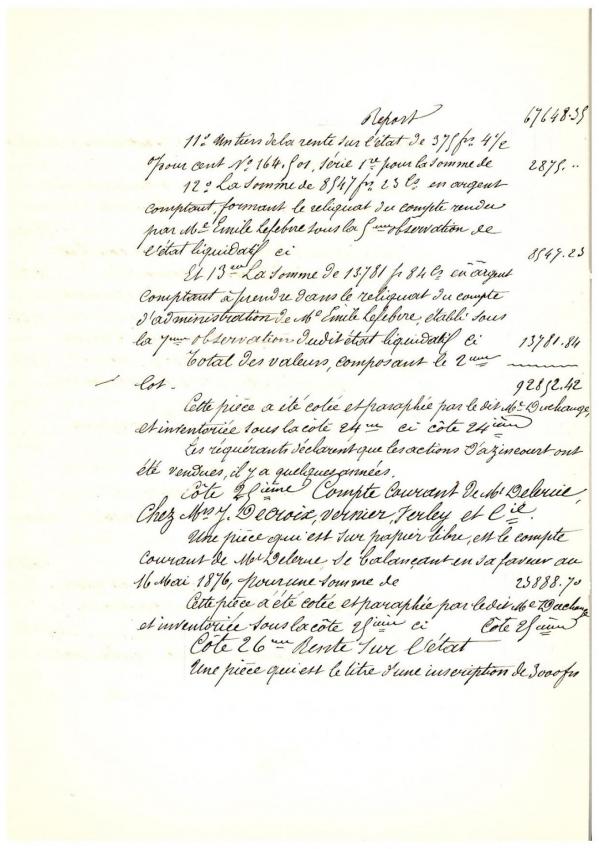 Report 67648.35
11° Un tiers de la rente sur l'état de 375 frs 4 1/2
pour cent N° 164.501, série 1re pour la somme de 2875. ..
12° La somme de 8547 frs 23 Cs en argent
comptant, formant le reliquat du compte rendu
par Me Emile Lefebvre sous la 5ème observation de
l'état liquidatif ci 8547.23
Et 13ent La somme de 13781 fr 84 Cs en argent
comptant à prendre dans le reliquat du compte
d'administration de Me Emile Lefebvre, établi sous
la 7ème observation dudit état liquidatif ci 13781.84
Total des valeurs, composant le 2ème
lot. 92852.42
Cette pièce a été cotée et paraphée par le dit Me Duchange,
et inventoriée sous la côte 24me ci côte 24ième
Les requérants déclarent que les actions d'azincourt ont
été vendues, il y a quelques années.
Côte 25ième Compte courant de Mr Delerue,
Chez Mrs J. Decroix, Vernier, Verley et Cie.
Une pièce qui est sur papier libre, est le compte
courant de Mr Delerue, se balançant en sa faveur au
16 Mai 1876, pour une somme de 23888.70
Cette pièce a été cotée et paraphée par le dit Me Duchange
et inventoriée sous la côte 25ième ci Côte 25ième
Côte 26me Rente sur l'état
Une pièce qui est le titre d'une inscription de 3000 frs